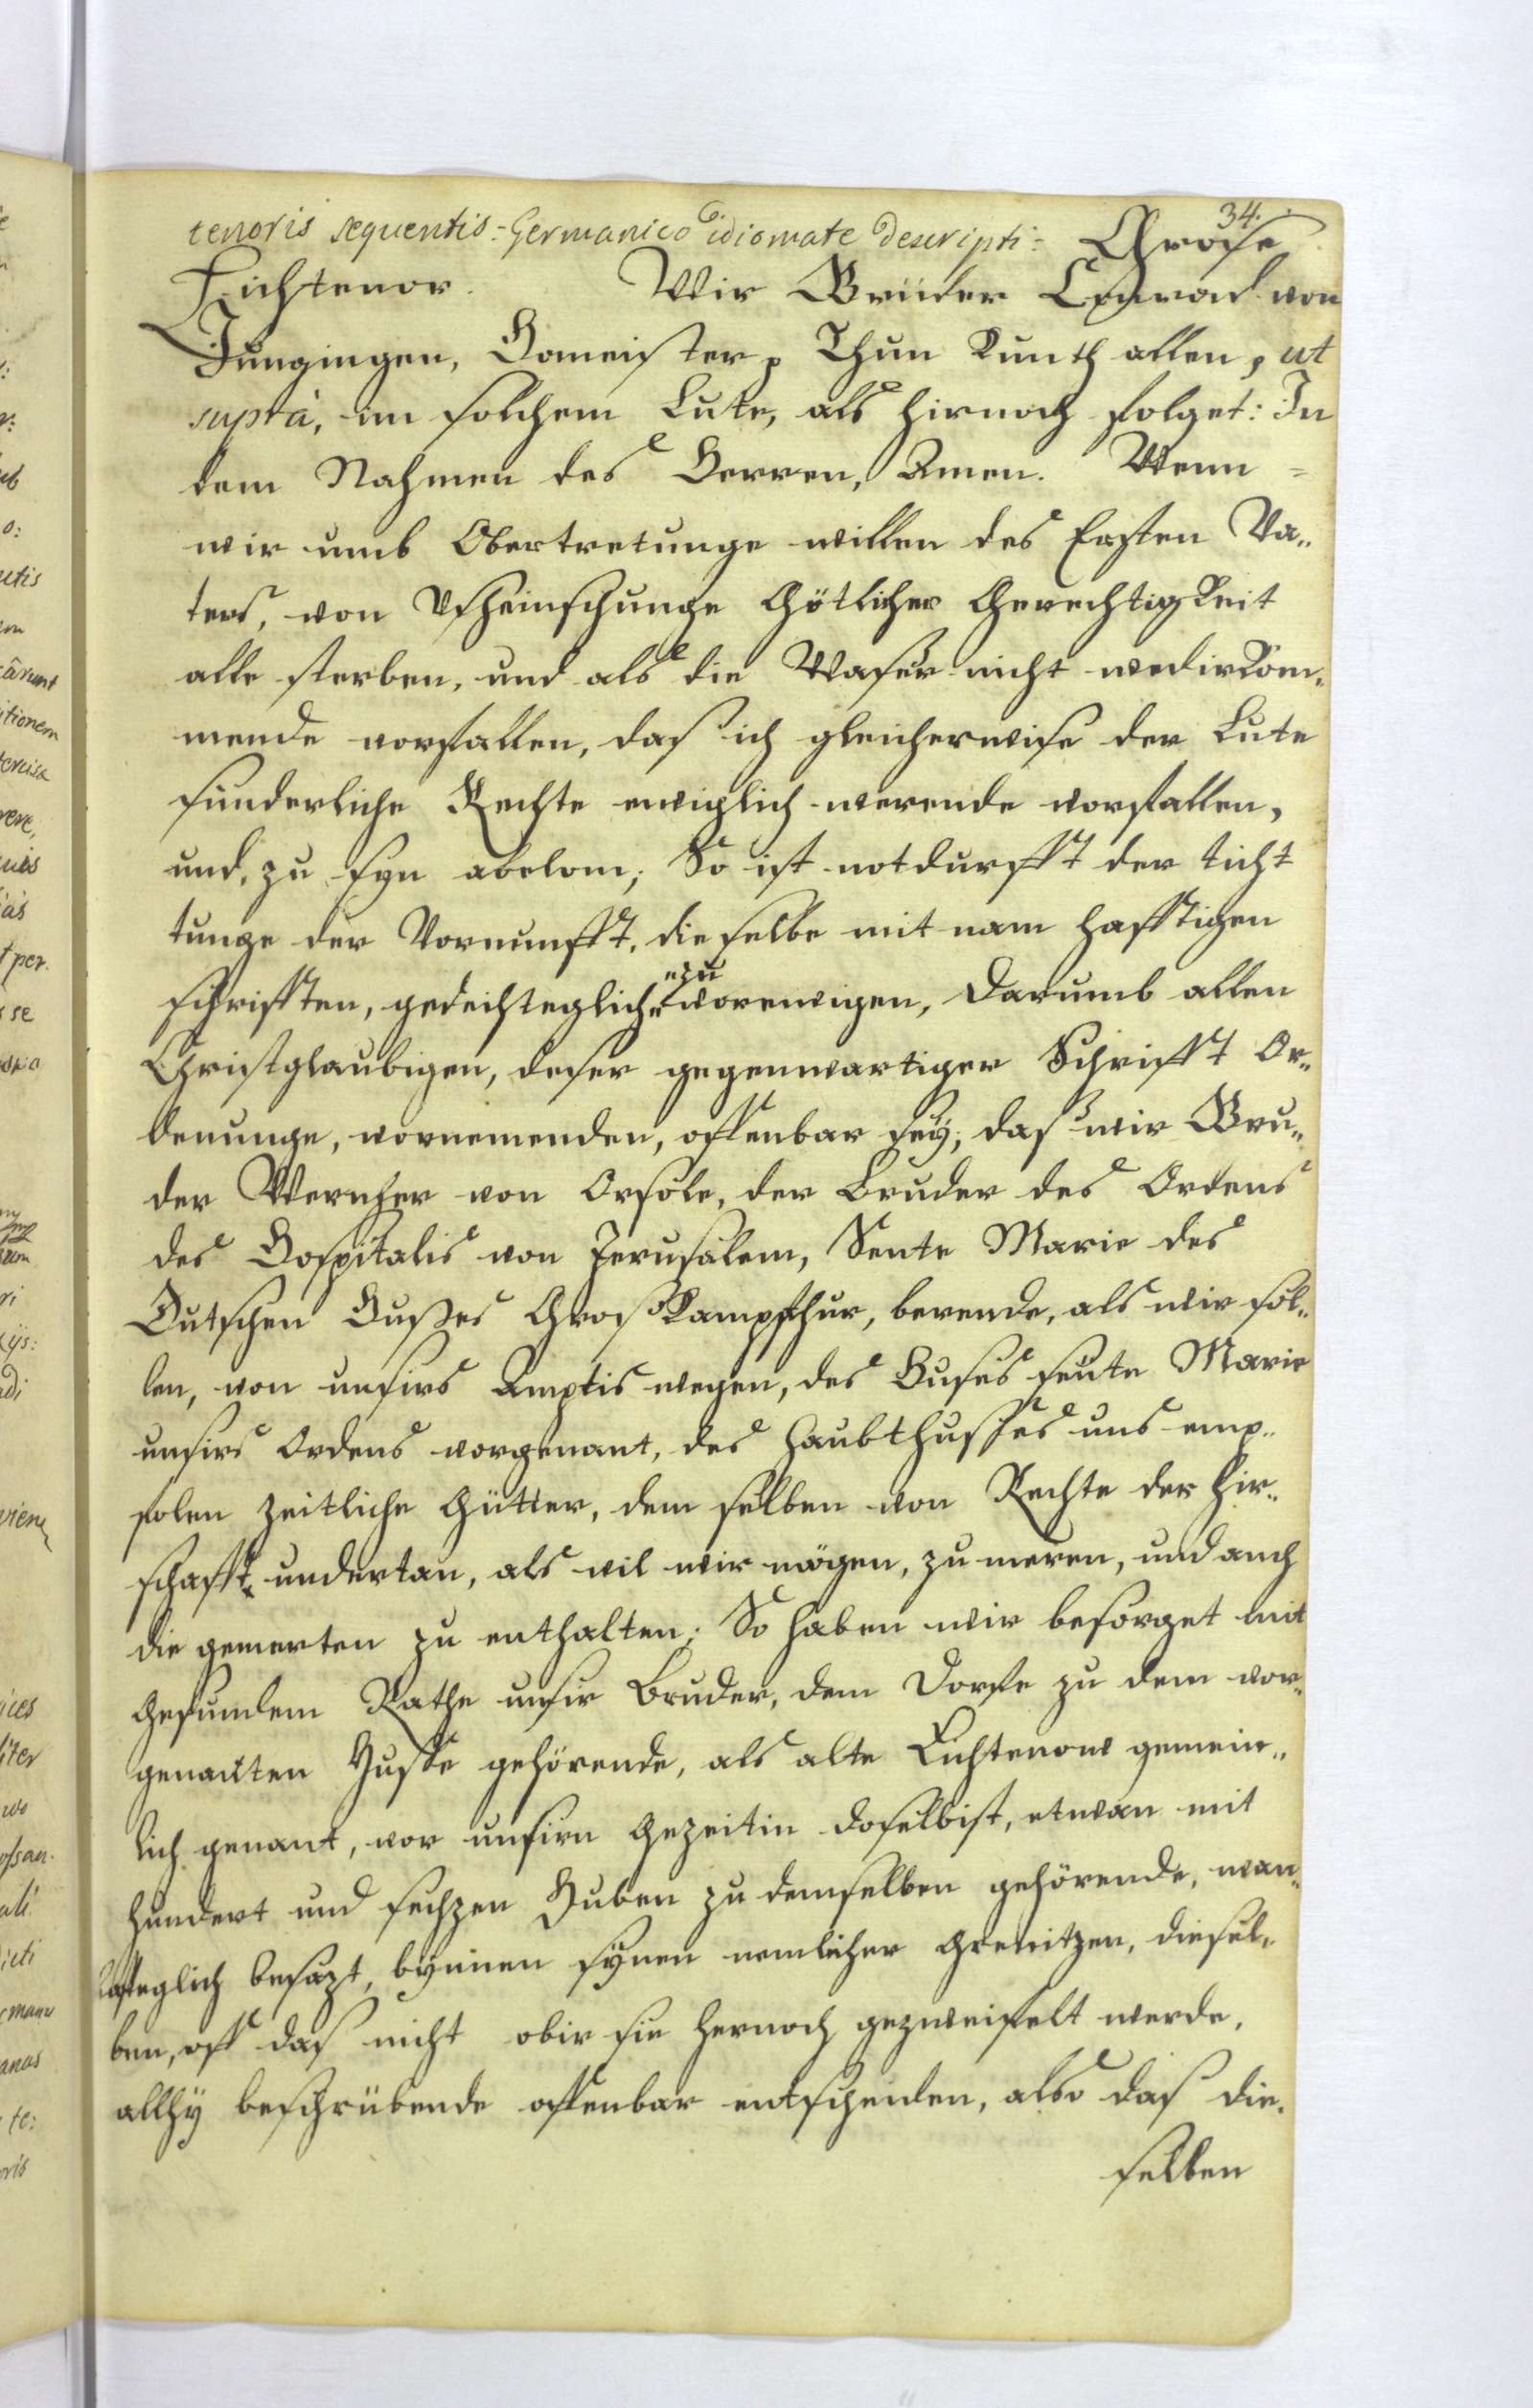 34.
tenoris sequentis Germanico idiomate descripti = Große
Lichtenor. Wir Brüder Conrad von
Jungingen, Homeister, Thun Kunth allen, ut
supra, im solchem Lute, als hirnoch folget: In
dem Nahmen des Herren, Amen. Wenn =
wir umb Obertretunge willen des Ersten Va„
ters, von Götlicher Gerechtigkeit
alle sterben, und als die Waser nicht wedirkom„
mende vorfallen, das ich gleicherweise der Lute
sunderliche Rechte ewiglich werende vorfallen,
und, zu syn So ist notdurfft der ticht
tunge der Vornunfft, die selbe mit nam hafftigen
schrifften, gedechteglich „zu vorewigen, Darumb allen
Christglaubigen, deser gegenwartiger Schrifft Or„
denunge, vornemenden, offenbar sey, das wir Bru„
der Wernher von Orsole, der Bruder des Ordens
des Hospitalis von Jerusalem, Sente Marie des
Dutschen Hußes Groß Kampthur, berende, als wir sol„
len, von unsirs Amptis wegen, des Huses sente Marie
unsirs Ordens vorgenant, des Haubthusses uns emp„
folen zeitliche Gütter, dem selben von Rechte der Hir„
schafft undertan, als vil wir mögen, zu meren, und auch
die gemerten zu enthalten; So haben wir besorget mit
Gesundem Rathe unsir Bruder, dem Dorffe zu dem vor„
genanten Husse gehörende, als alte Lichtenow gemein„
lich genant, vor unsirn Gezeitin doselbist, etwan mit
hundert und sechzen Huben zu demselben gehörende, man„
lasteglich besazt, bynnen synen nemlicher Grenitzen, diesel„
ben, off das nicht obir sie hernoch gezweifelt werde,
allhy beschrübende offenbar entscheiden, also das die„
selben